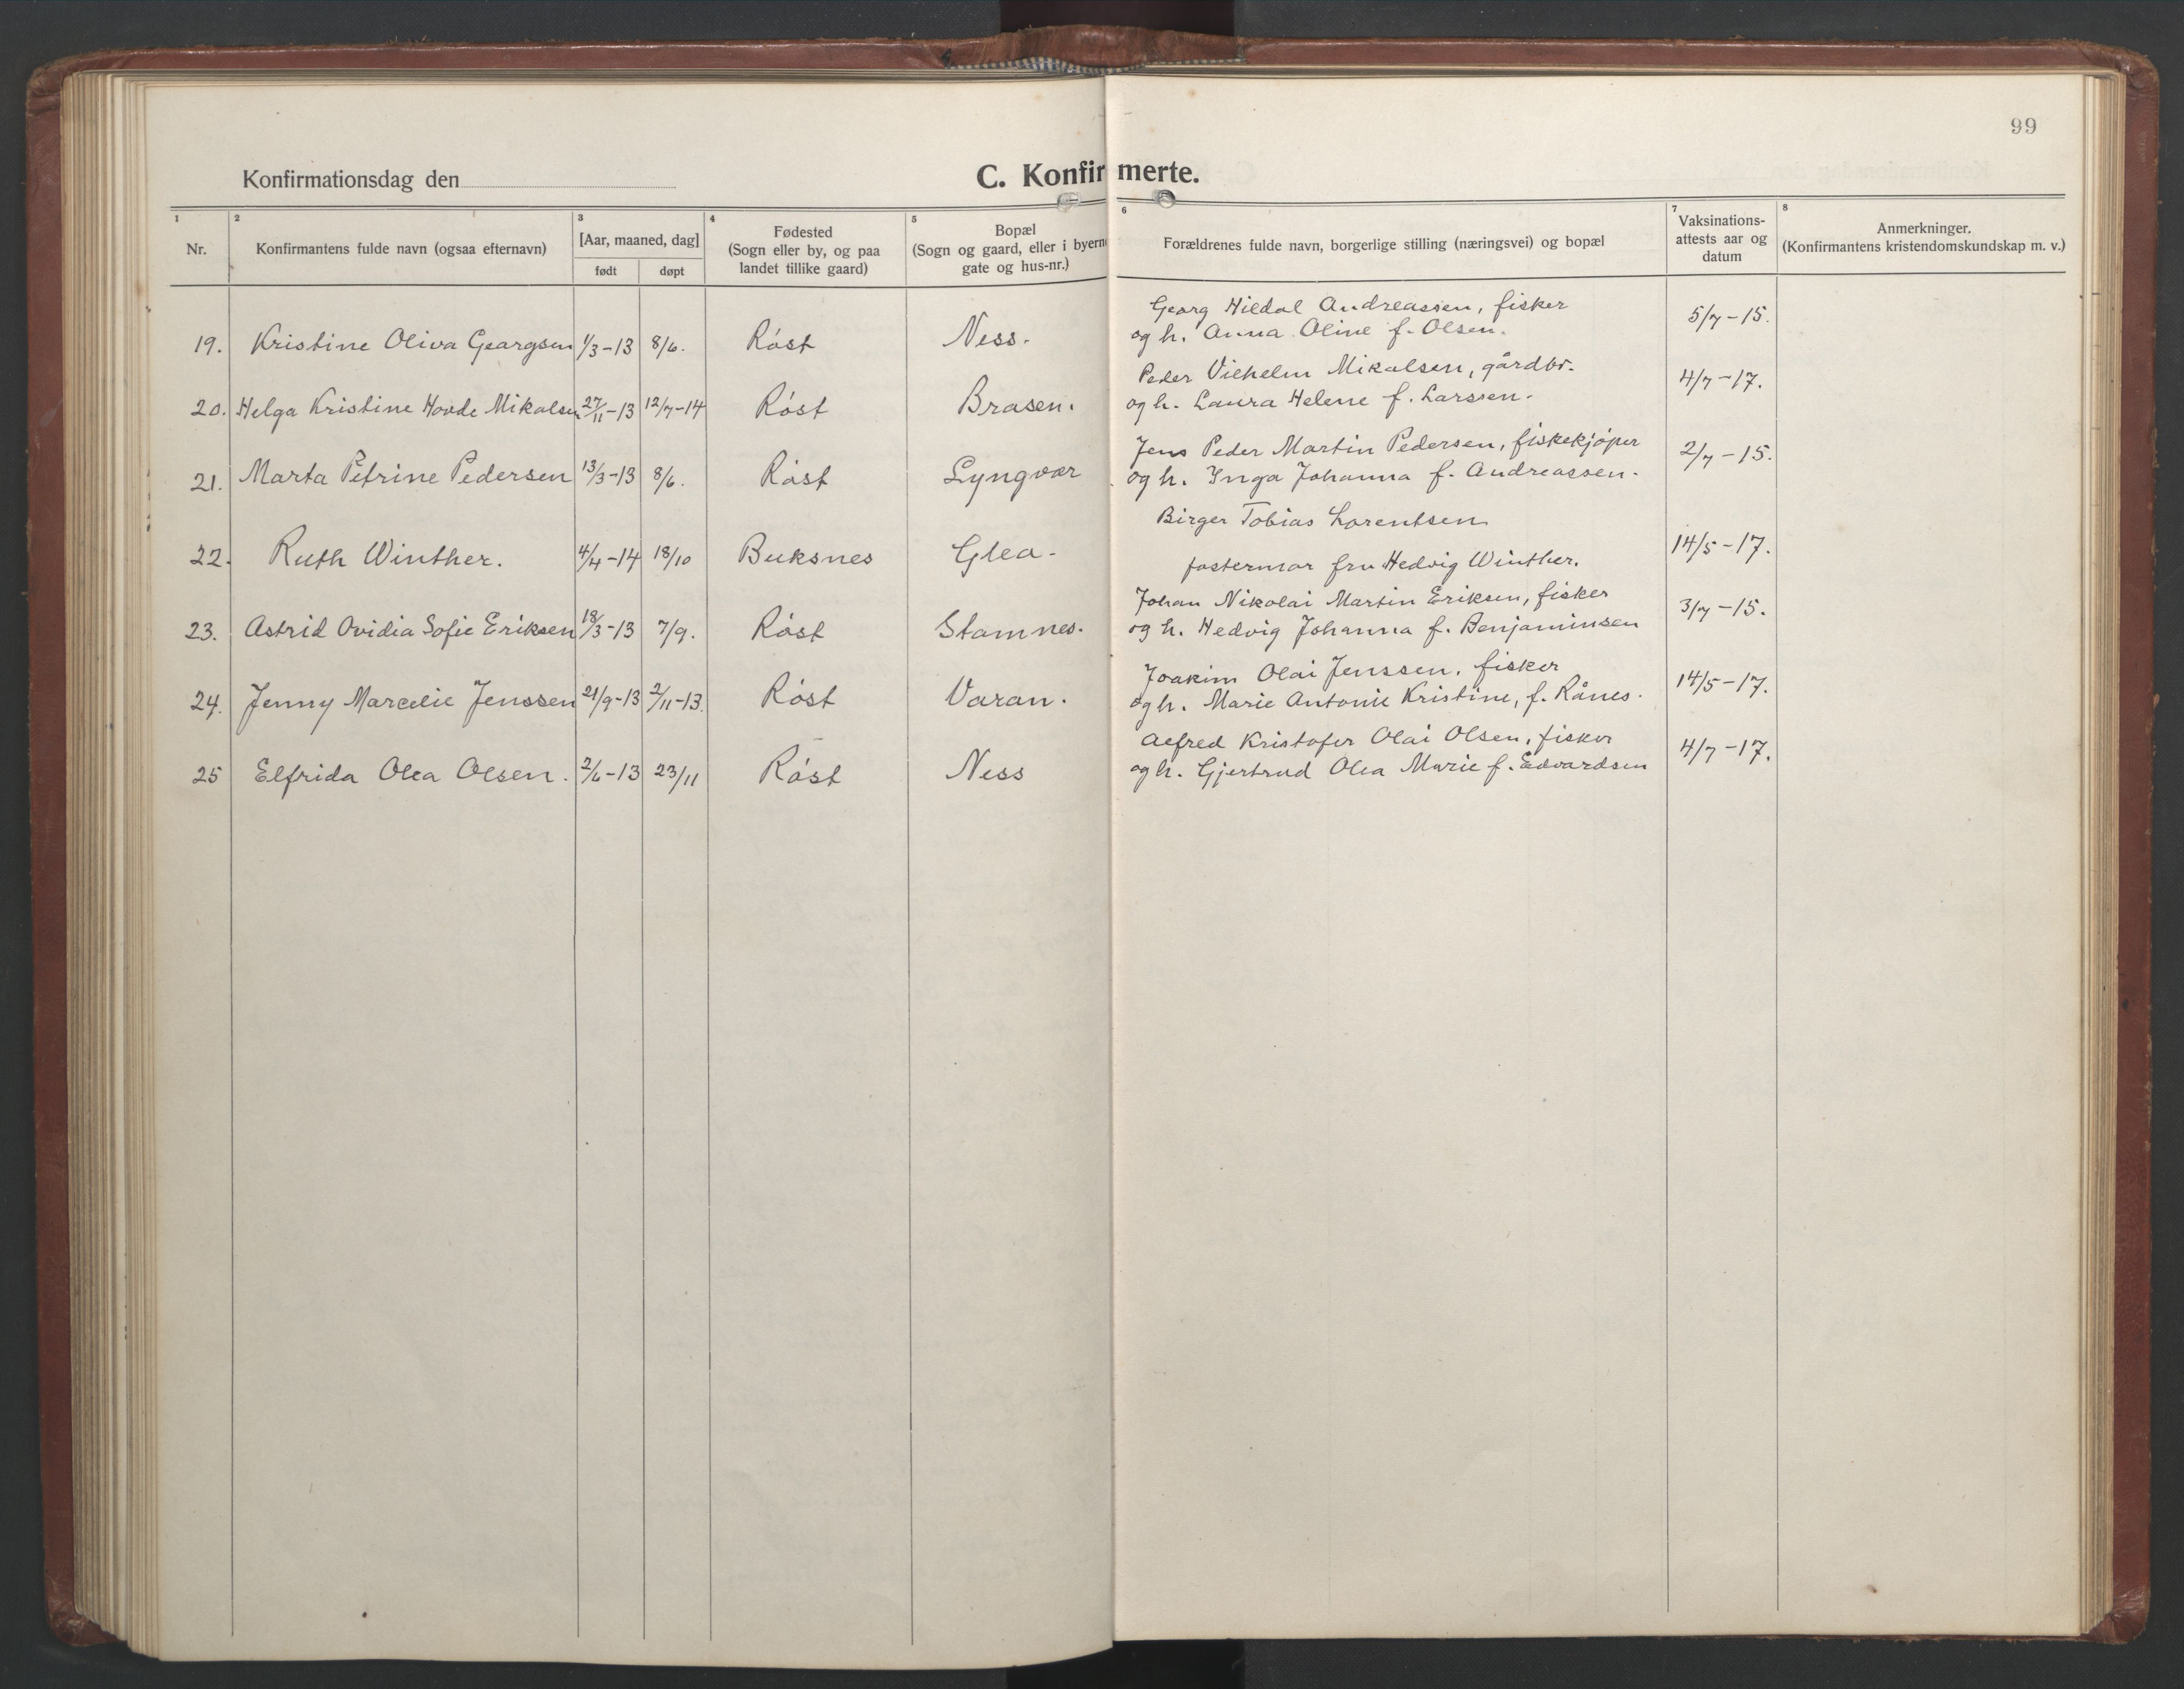 99
Konfirmationsdag den
C. Konfirmerte.
1 2 3 4 5 6 7 8
Nr.
Konfirmantens fulde navn (ogsaa efternavn)
[Aar, maaned, dag]
født døpt
Fødested
(Sogn eller by, og paa
landet tillike gaard)
Bopæl
(Sogn og gaard, eller i byerne
gate og hus-nr.)
Forældrenes fulde navn, borgerlige stilling (næringsvei) og bopæl
Vaksinations-
attests aar og
datum
Anmerkninger.
(Konfirmantens kristendomskundskap m. v.)
19. Kristine Oliva Georgsen 1/3-13 8/6. Röst Ness.
Georg Hildal Andreassen, fisker
og h. Anna Oline f. Olsen.
5/7-15.
20. Helga Kristine Hovde Mikalsen 27/11-13 12/7-14 Röst Brasen.
Peder Vilhelm Mikalsen, gårdbr.
og h. Laura Helene f. Larssen.
4/7-17.
21. Marta Petrine Pedersen 13/3-13 8/6. Röst Lyngvær
Jens Peder Martin Pedersen, fiskekjöper
og h. Inga Johanna f. Andreassen.
2/7-15.
22. Ruth Winther. 4/4-14 18/10 Buksnes Glea.
Birger Tobias Lorentsen
fostermor fru Hedvig Winther.
14/5-17.
23. Astrid Ovidia Sofie Eriksen 18/3-13 7/9. Röst Stamnes.
Johan Nikolai Martin Eriksen, fisker
og h. Hedvig Johanna f. Benjaminsen
3/7-15.
24. Jenny Marcelie Jenssen 21/9-13 2/11-13. Röst Varan.
Joakim Olai Jenssen, fisker
og h. Marie Antonie Kristine, f. Rånes.
14/5-17.
25 Elfrida Olea Olsen. 2/6-13 23/11 Röst Ness
Alfred Kristofer Olai Olsen, fisker
og h. Gjertrud Olea Marie f. Edvardsen
4/7-17.